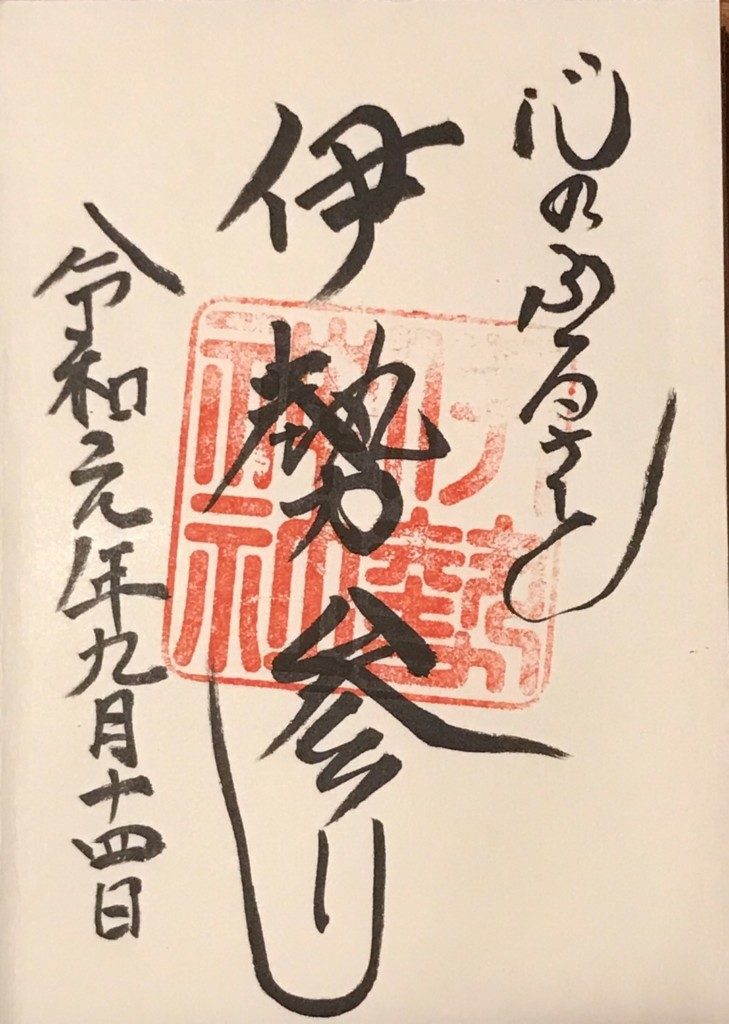 心のふるさと
伊勢参り
令和元年九月十四日
伊勢